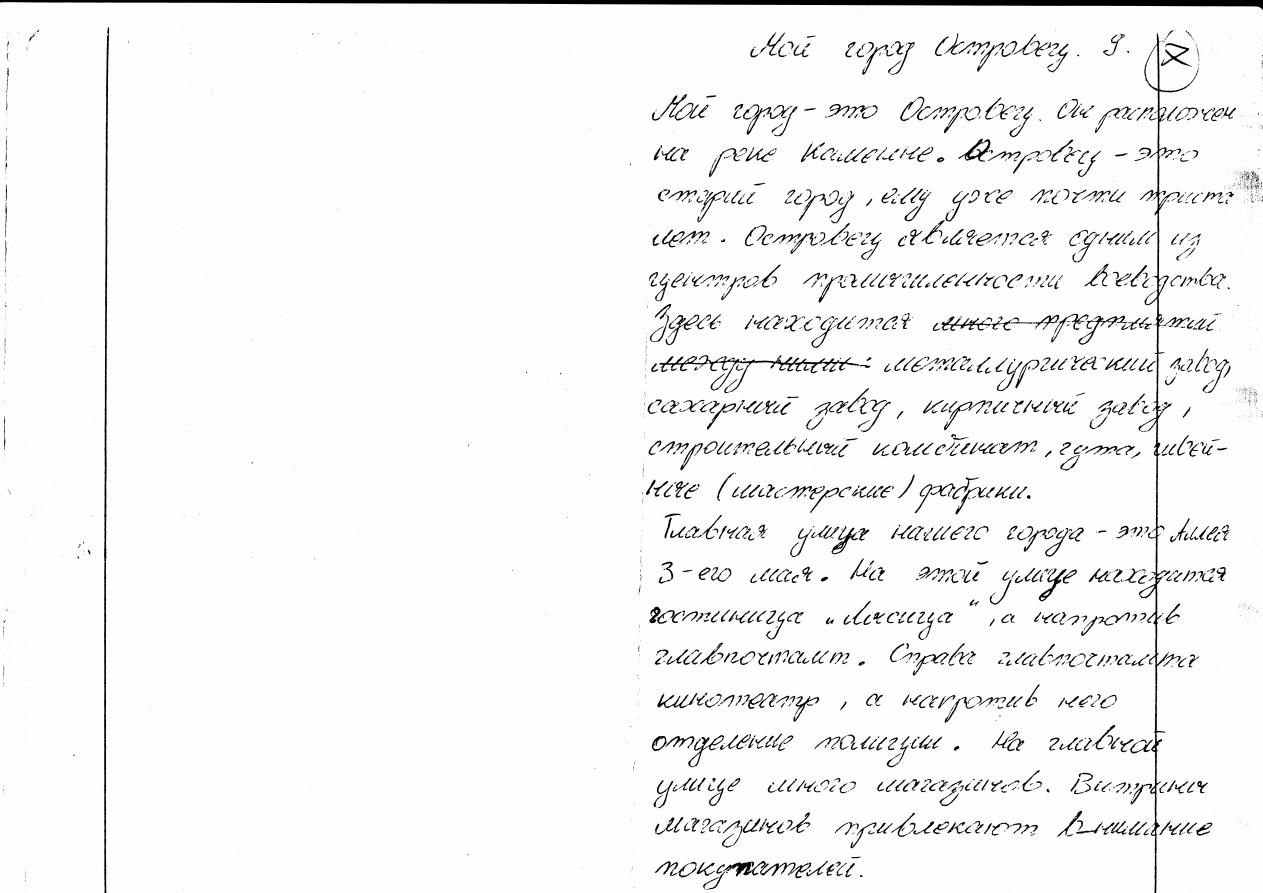 Мой город Островец. 9. X
Мой город – это Островец. Он расположен
на реке Каменне. Островец – это
старый город, ему уже почти триста
лет. Островец является одним из
центров промышленности воеводства.
Здесь находится много предприятий
между ними: металлургический завод,
сахарный завод, кирпичный завод,
строительный комбинат, гута, швей-
ные (мастерские) фабрики.
Главная улица нашего города – это Аллея
3-его мая. На этой улице находится
гостиница „Лысица", а напротив
главпочтамт. Справа главпочтамта
кинотеатр, а напротив него
отделение полиции. На главной
улице много магазинов. Витрины
магазинов привлекают внимание
покупателей.